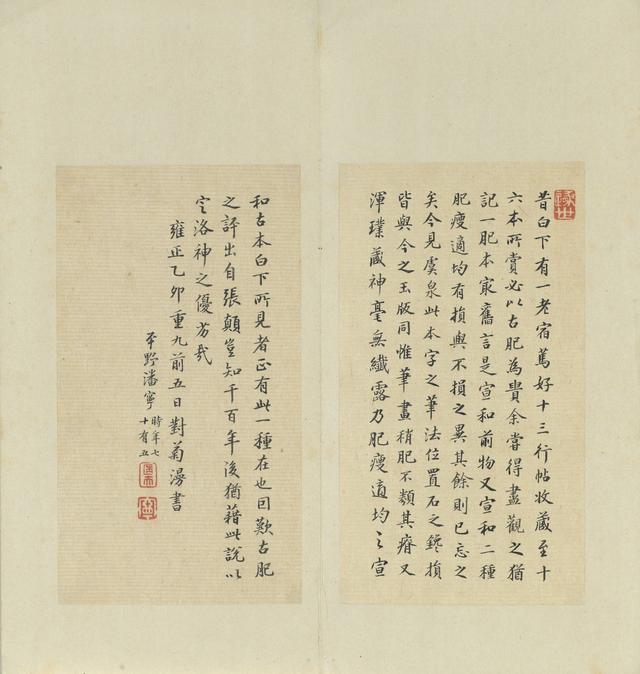 昔白下有一老宿篤好十三行帖收藏至十
六本所賞必以古肥為貴余嘗得盡觀之猶
記一肥本家舊言是宣和前物又宣和二種
肥瘦適均有損與不損之異其餘則已忘之
矣今見虞泉此本字之筆法位置石之鑱損
皆與今之玉版同惟筆畫稍肥不類其瘠又
渾璞藏神毫無纖露乃肥瘦適均之宣
和古本白下所見者正有此一種在也因歎古肥
之評出自張顛豈知千百年後猶藉此說以
定洛神之優劣哉
雍正乙卯重九前五日對菊漫書
平野潘寧
時年七
十有五